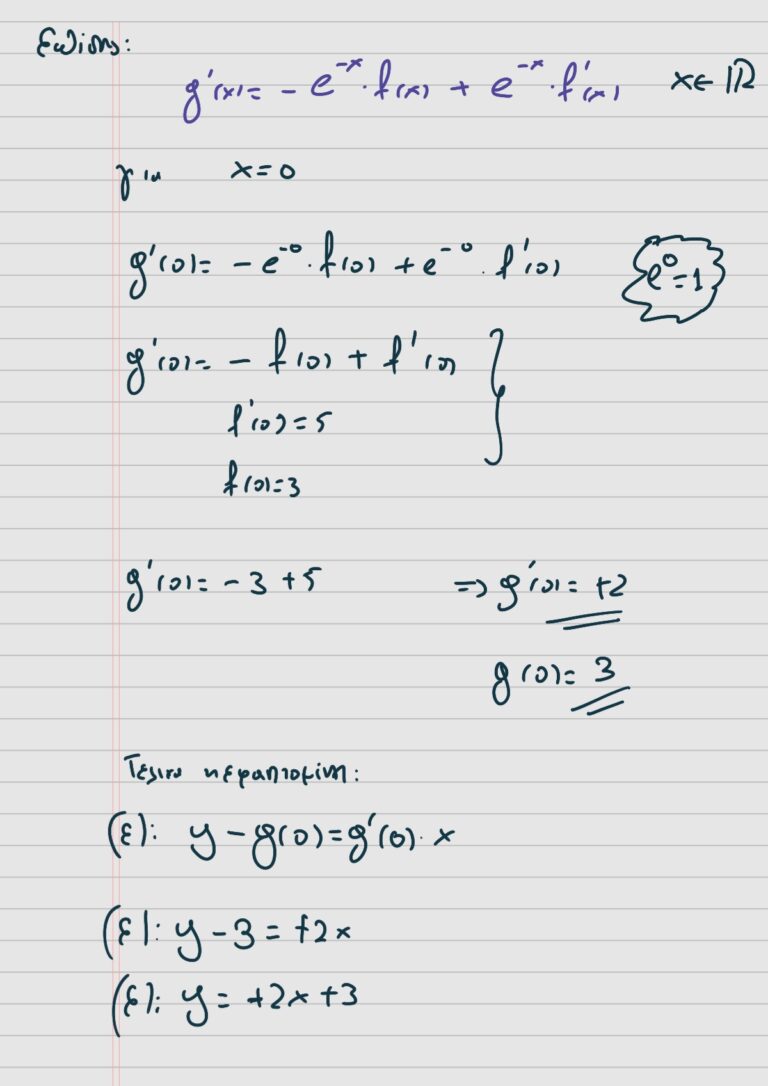 Επίσης:
g'(x) = - e^{-x} · f(x) + e^{-x} · f'(x) x ∈ ℝ
για x = 0
g'(0) = - e^{-0} · f(0) + e^{-0} · f'(0)
e^0 = 1
g'(0) = - f(0) + f'(0) }
f'(0) = 5
f(0) = 3
g'(0) = - 3 + 5 ⇒ g'(0) = +2
g(0) = 3
Τελικα η εφαπτομένη:
(ε): y - g(0) = g'(0) · x
(ε): y - 3 = +2x
(ε): y = +2x + 3